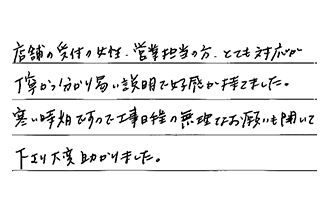 店舗の受付の女性、営業担当の方、とても対応が
丁寧かつ分かり易い説明で好感が持てました。
寒い時期ですので工事日程の無理なお願いも聞いて
下さり大変助かりました。